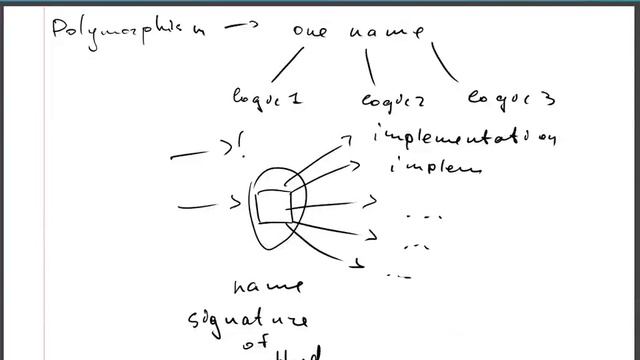 Polymorphism → one name
logic 1 logic 2 logic 3
→ ! implementation
implem
→ ...
...
...
name
signature
of